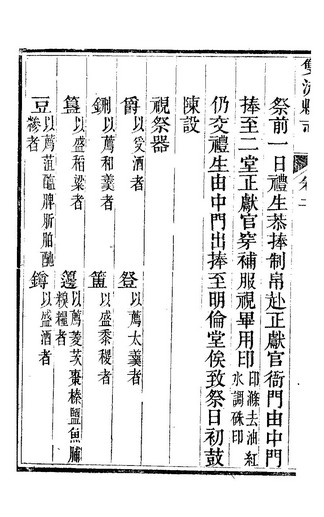 雙流縣志 卷二
祭前一日禮生恭捧制帛赴正獻官衙門由中門
捧至二堂正獻官穿補服視畢用印印滌去油紅水調硃印
仍交禮生由中門出捧至明倫堂俟致祭日初鼓
陳設
視祭器
爵以爰酒者 登以薦太羹者
鉶以薦和羹者 簠以盛黍稷者
簋以盛稻粱者 籩以薦菱芡棗榛鹽魚脯糗糧者
豆以薦菹醢脾肵胉酏糝者 罇以盛酒者